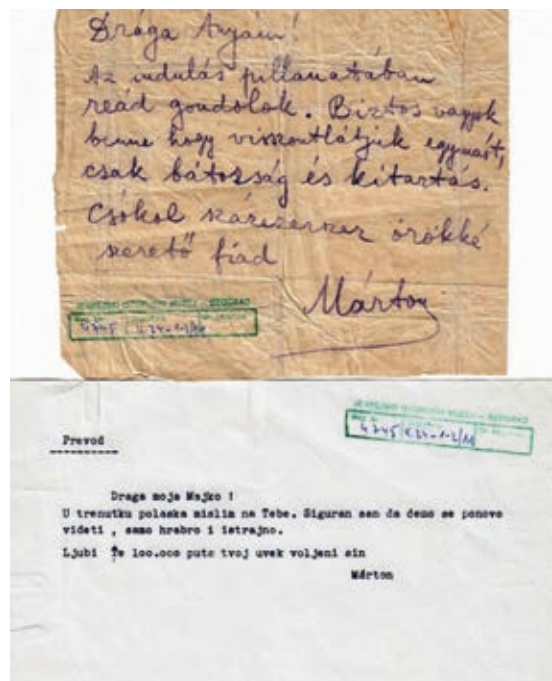 Drága Anyám!
Az indulás pillanatában
reád gondolok. Biztos vagyok
benne hogy viszontlátjuk egymást,
csak bátorság és kitartás.
Csókol százezerszer örökké
szerető fiad
Márton
4745 K.24-1-2/11
4745 K.24-1-2/11
Prevod
Draga moja Majko !
U trenutku polaska mislim na Tebe. Siguran sam da ćemo se ponovo
videti , samo hrabro i istrajno.
Ljubi Te 100.000 puta tvoj uvek voljeni sin
Márton